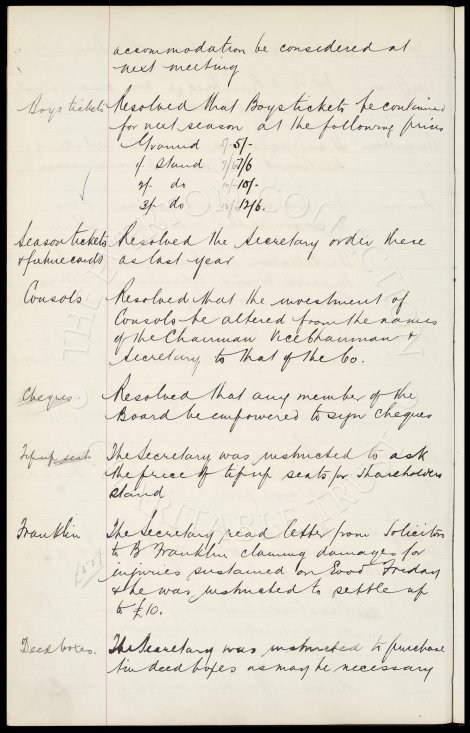 accommodation be considered at
next meeting
Boys tickets Resolved that Boys tickets be continued
for next season at the following prices
Ground 5/-
1/- Stand 7/6
2/- do 10/-
3/- do 12/6.
Season tickets Resolved the Secretary order these
& fixture cards as last year
Consols Resolved that the investment of
Consols be altered from the names
of the Chairman Vice Chairman &
Secretary to that of the Co.
Cheques. Resolved that any member of the
Board be empowered to sign cheques
Tip up seats The Secretary was instructed to ask
the price of tip up seats for Shareholders
stand
Franklin The Secretary read letter from Solicitors
to B Franklin claiming damages for
injuries sustained on Good Friday
& he was instructed to settle up
to £10.
Deed boxes. The Secretary was instructed to purchase
tin deed boxes as may be necessary
THE COLLECTION
CHARITABLE TRUST